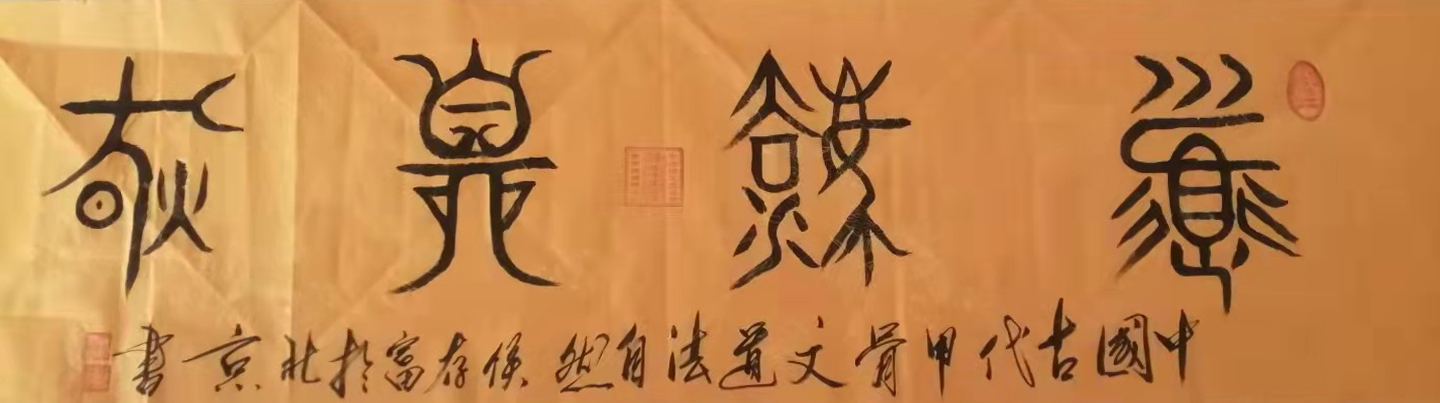 道法自然
中國古代甲骨文道法自然侯存富於北京書